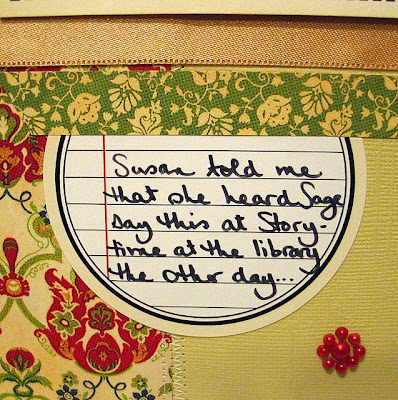 Susan told me
that she heard Sage
say this at Story-
time at the library
the other day...